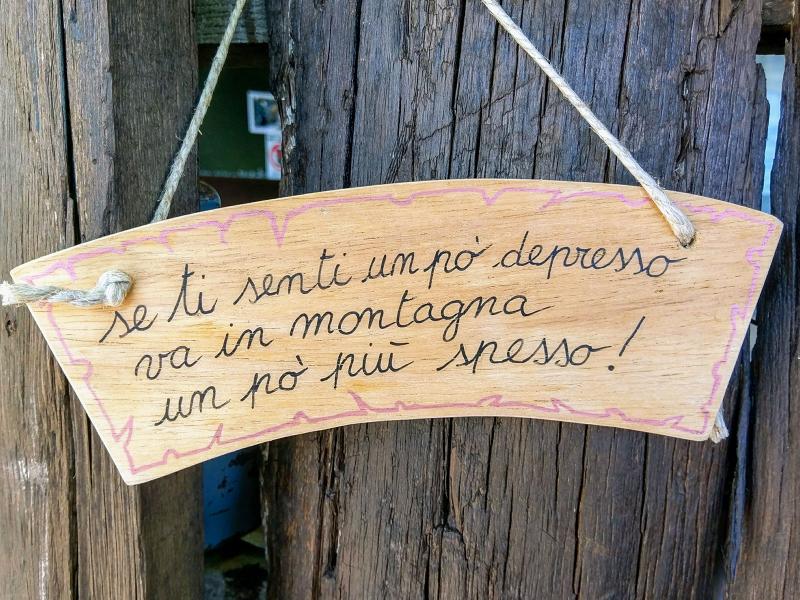 se ti senti un pò depresso
va in montagna
un pò più spesso!